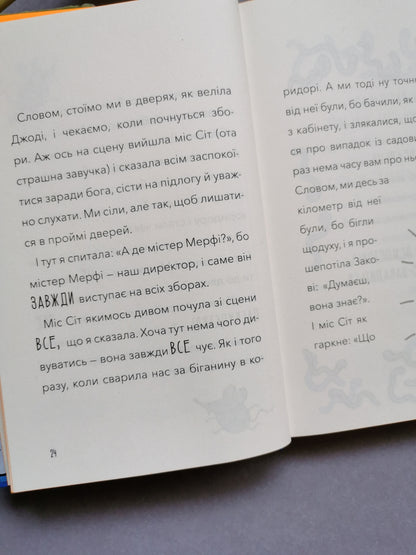 Словом, стоїмо ми в дверях, як веліла
Джоді, і чекаємо, коли почнуться збо-
ри. Аж ось на сцену вийшла міс Сіт (ота
страшна завучка) і сказала всім заспокої-
тися заради бога, сісти на підлогу й уваж-
но слухати. Ми сіли, але так, щоб лишати-
ся в проймі дверей.
І тут я спитала: «А де містер Мерфі?», бо
містер Мерфі – наш директор, і саме він
ЗАВЖДИ виступає на всіх зборах.
Міс Сіт якимось дивом почула зі сцени
ВСЕ, що я сказала. Хоча тут нема чого ди-
вуватись – вона завжди ВСЕ чує. Як і того
разу, коли сварила нас за біганину в ко-
24
ридорі. А ми тоді ну точн
від неї були, бо бачили, як
з кабінету, і злякалися, що
ся про випадок із садов
раз нема часу вам про ньо
Словом, ми десь за
кілометр від неї
були, бо бігли
щодуху, і я про-
шепотіла Зако-
ві: «Думаєш,
вона знає?».
І міс Сіт як
гаркне: «Що